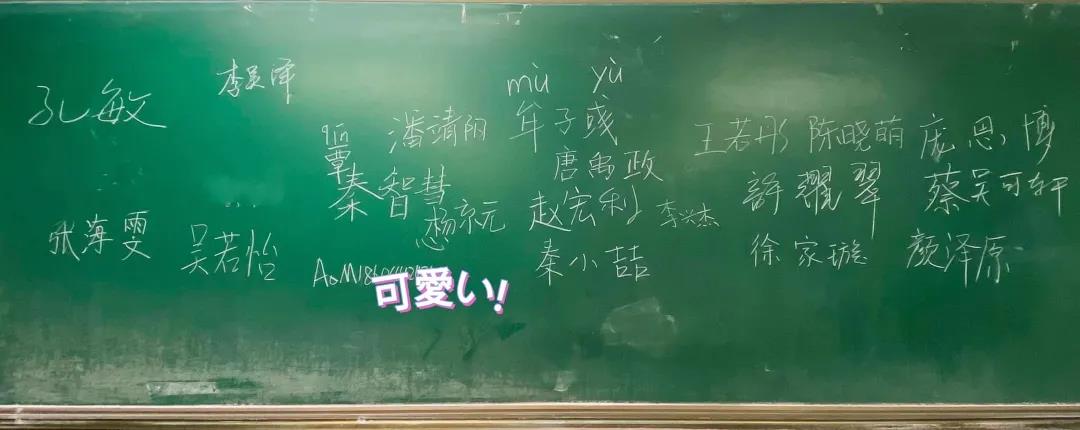 李昊泽
孔敏
mù yù
qín
潘靖阳 牟子彧
王若彤 陈晓萌 庞恩博
覃
秦智彗
唐禹政
許耀翠 蔡吴可轩
杨京元 赵宏利 李兴杰
张海雯 吴若怡
秦小喆
徐家璇 颜泽原
可愛い!